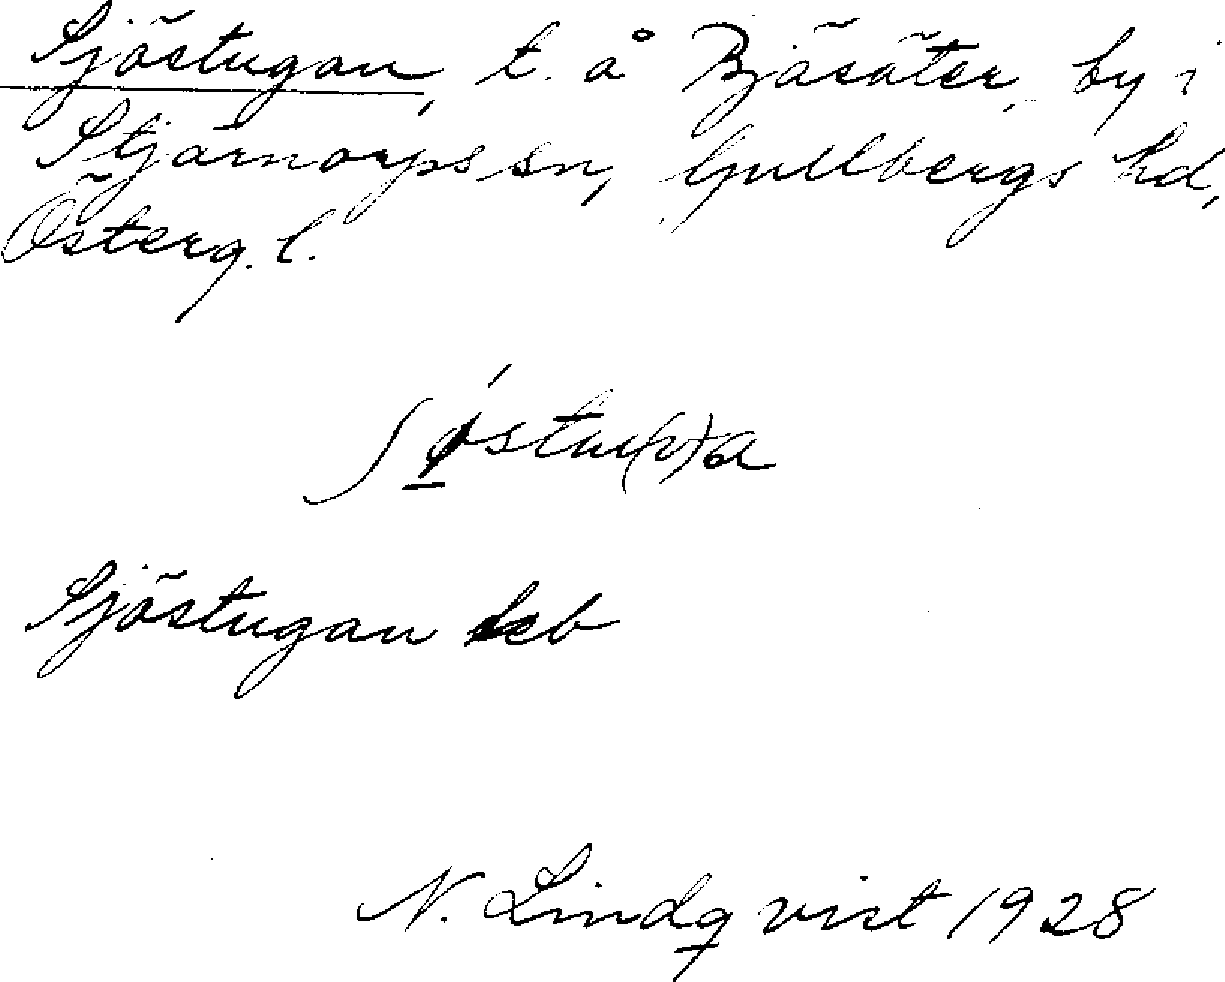 Sjöstugan, t. å Bjäsäter, by i
Stjärnorps sn, Gullbergs hd,
Österg. l.
ʃǿ̱stu(v)a
Sjöstugan jeb
N. Lindqvist 1928